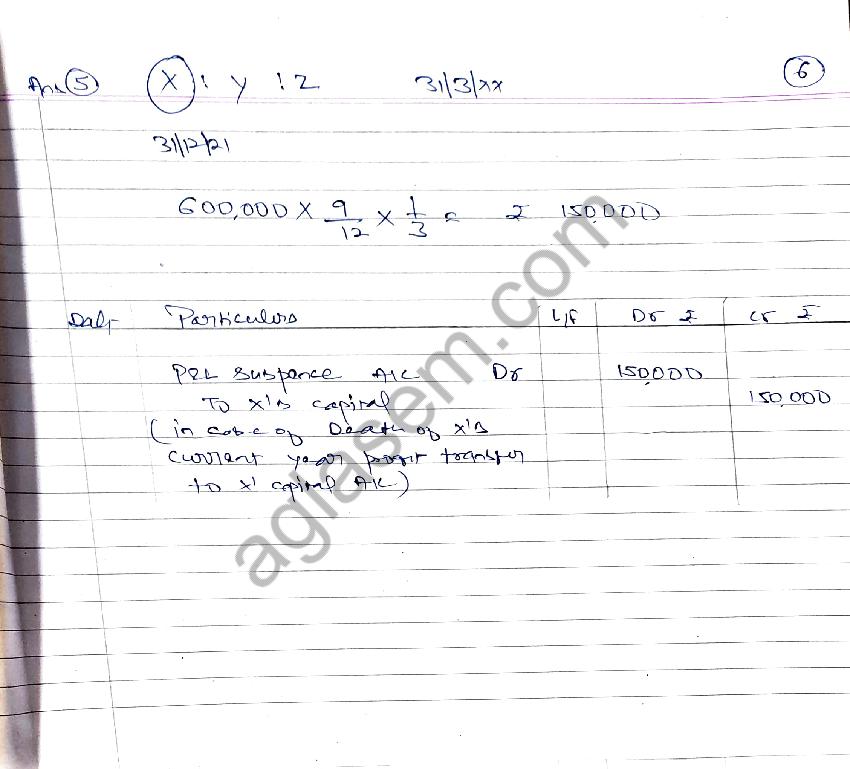 Ans (5) X : Y : Z 31/3/xx 6
31/12/21
600,000 X 9/12 X 1/3 = ₹ 150,000
Date Particulars L/f Dr ₹ Cr ₹
P&L Suspence A/c Dr 150,000
To X's capital 150,000
(in case of Death of X's
current year profit transfer
to X' capital A/c)
aglasem.com